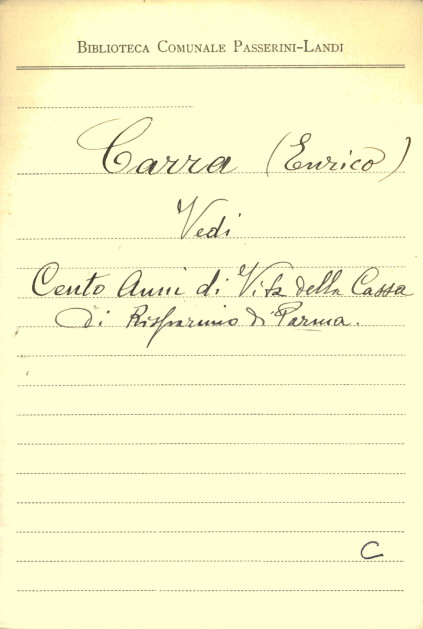 Biblioteca Comunale Passerini-Landi
Carra (Enrico)
Vedi
Cento Anni di Vita della Cassa
di Risparmio di Parma.
C